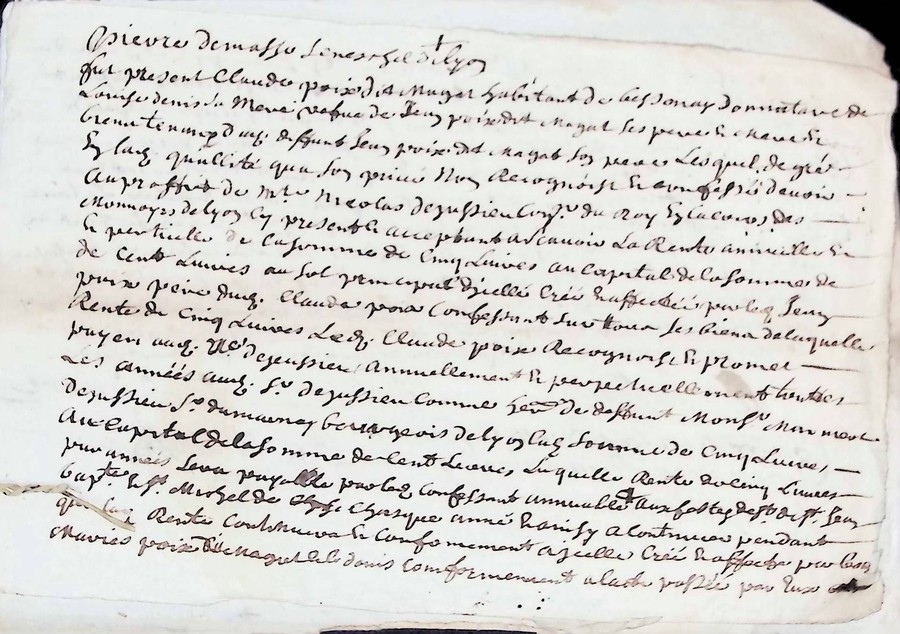 pierre demasso seneschal de lyon
fut present Claude poix dit Magat habitant de bessenay donnataire de
Louise denis sa mere vefue de Jean poix dit Magat ses pere Et mere Et
tenant dud. deffunt Jean poix dit Magat son pere Lesquel de gré
En lad. quallité que son privé Nom Recognoist Et confesse devoir
Au proffit de Mre Nicolas dejussieu du roy En la cour des
Monnoyes de lyon Cy present Et acceptant ascavoir La Rente annuelle Et
de La somme de Cinq Livres au Capital de la somme de
de Cent Livres au sol principal d'jcelle Creé Et affectée par led. Jean
poix pere dud. Claude poix Confessant sur tous ses biens de laquelle
Rente de Cinq Livres Led. Claude poix Recognoist Et promet
payer aud. Sr dejussieu Annuellement Et perpetuellement toutes
Les années aud. Sr dejussieu Comme de deffunt Monsr
Dejussieu Sr bourgeois de lyon Lad. somme de Cinq Livres
Au Capital de la somme de Cent Livres Laquelle Rente de Cinq Livres
par années sera payable par led. Confessant aux festes de St Jean
bapte Et St Michel de Chasque année Et ainsy a Continuer pendant
que lad. Rente Continuera Et Conformement a jcelle Creé Et affecté par lesd.
mariés poix dit Magat Et denis Conformement a lacte passée par Eux